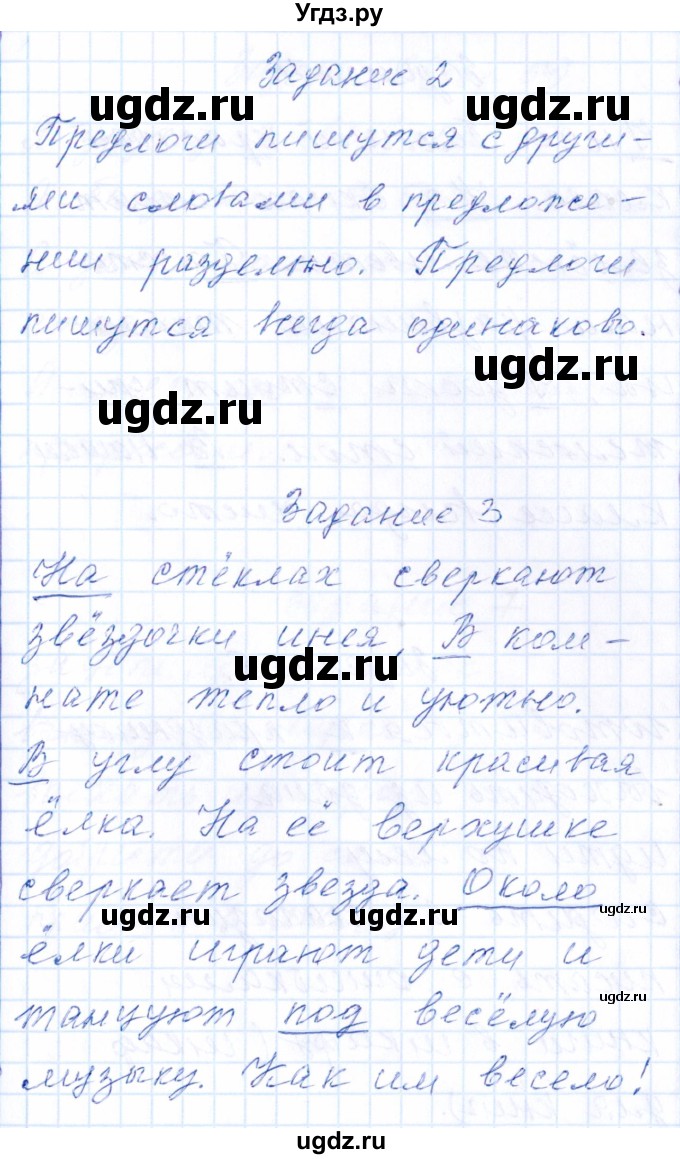 Угдз.ру
Задание 2
ugdz.ru ugdz.ru
Предлоги пишутся с други-
ми словами в предложе-
нии раздельно. Предлоги
пишутся всегда одинаково.
ugdz.ru
ugdz.ru
Задание 3
На стёклах сверкают
звёздочки инея. В ком-
ugdz.ru
нате тепло и уютно.
В углу стоит красивая
ёлка. На её верхушке
сверкает звезда. Около
ugdz.ru ugdz.ru ugdz.ru
ёлки играют дети и
ugdz.ru
танцуют под весёлую
музыку. Как им весело!
ugdz.ru